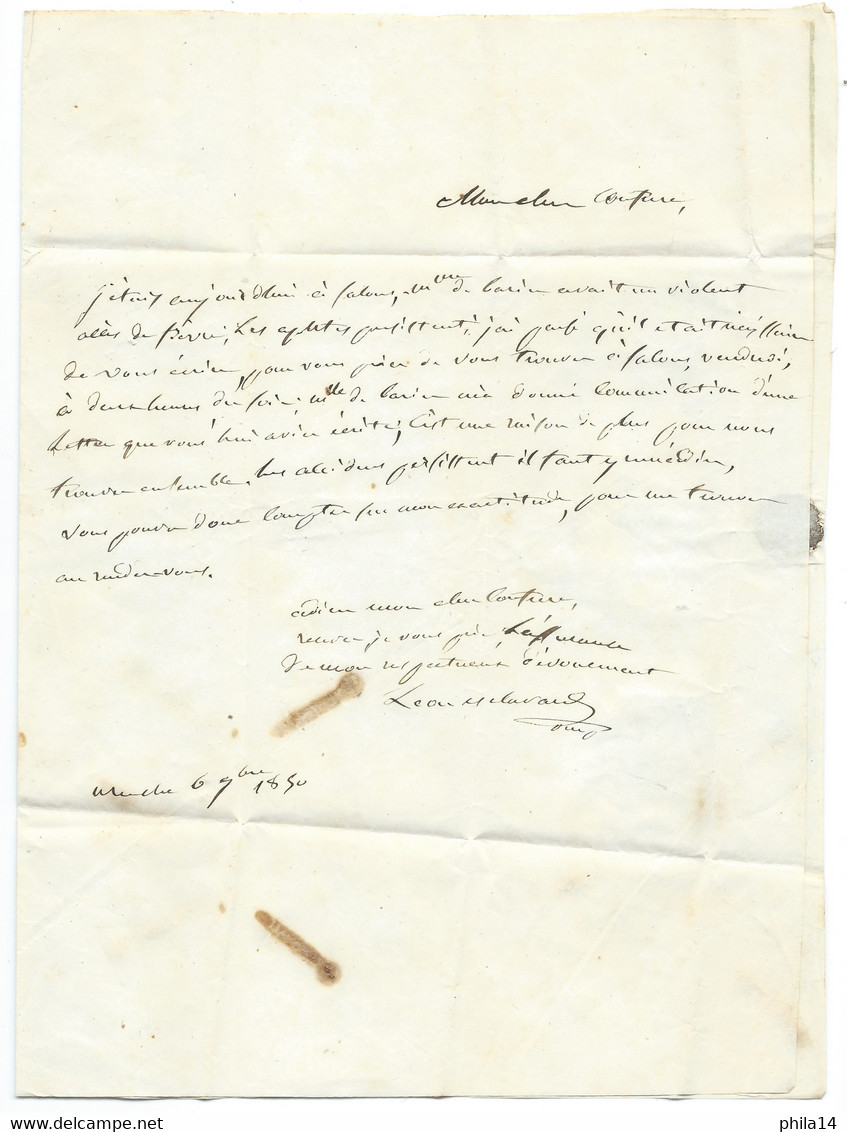 Mon cher Confrère,
j'étais aujourd'hui à Salons, Mme de barin avait un violent
accès de fièvre, Les aphtes persistent, j'ai pensé qu'il était nécessaire
de vous écrire, pour vous prier de vous trouver à Salons, vendredi,
à deux heures du soir. Mlle de barin m'a donné communication d'une
Lettre que vous lui aviez écrite, C'est une raison de plus pour nous
trouver ensemble. Les accidens persistent il faut y remédier,
vous pouvez donc compter sur mon exactitude, pour me trouver
au rendez-vous.
adieu mon cher Confrère,
recevez je vous prie, L'assurance
De mon respectueux dévouement
Leon
6 9bre 1850
phila14